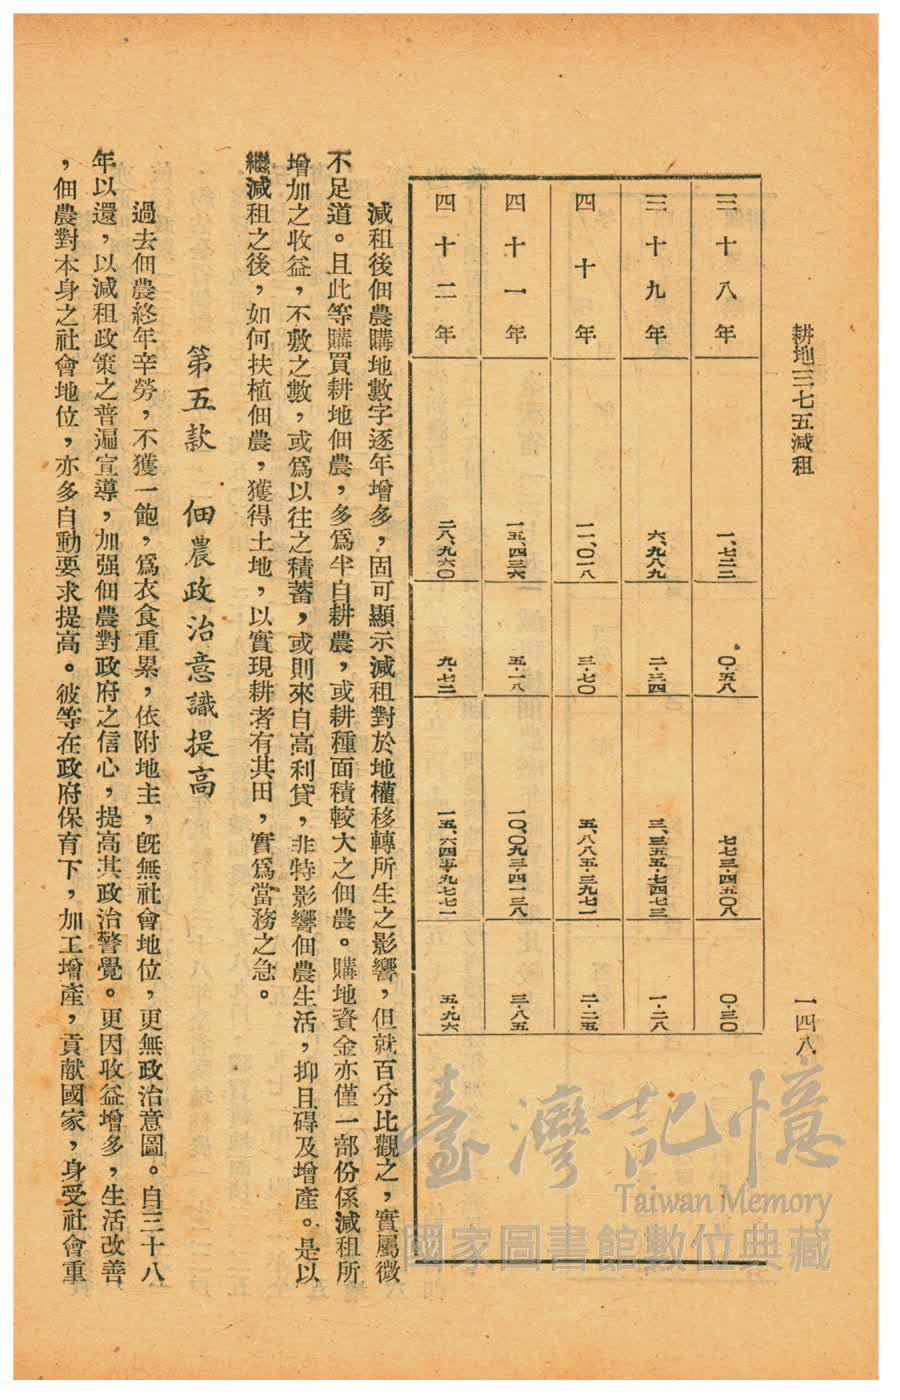 耕地三七五減租
一四八
三十八年 一、七二二 〇・五八 七七三・四五〇八 〇・三〇
三十九年 六、九八九 二・三四 三、三五五・七四七三 一・二八
四十年 一一、〇一八 三・七〇 五、八八五・三九七一 二・二五
四十一年 一五、四三六 五・一八 一〇、〇九三・四一三八 三・八五
四十二年 二八、九六〇 九・七二 一五、六四五・九七七一 五・九六
減租後佃農購地數字逐年增多，固可顯示減租對於地權移轉所生之影響，但就百分比觀之，實屬微
不足道。且此等購買耕地佃農，多爲半自耕農，或耕種面積較大之佃農。購地資金亦僅一部份係減租所
增加之收益，不敷之數，或爲以往之積蓄，或則來自高利貸，非特影響佃農生活，抑且碍及增產。是以
繼減租之後，如何扶植佃農，獲得土地，以實現耕者有其田，實爲當務之急。
第五款　佃農政治意識提高
過去佃農終年辛勞，不獲一飽，爲衣食重累，依附地主，旣無社會地位，更無政治意圖。自三十八
年以還，以減租政策之普遍宣導，加强佃農對政府之信心，提高其政治警覺。更因收益增多，生活改善
，佃農對本身之社會地位，亦多自動要求提高。彼等在政府保育下，加工增產，貢献國家，身受社會重
臺灣記憶
Taiwan Memory
國家圖書館數位典藏